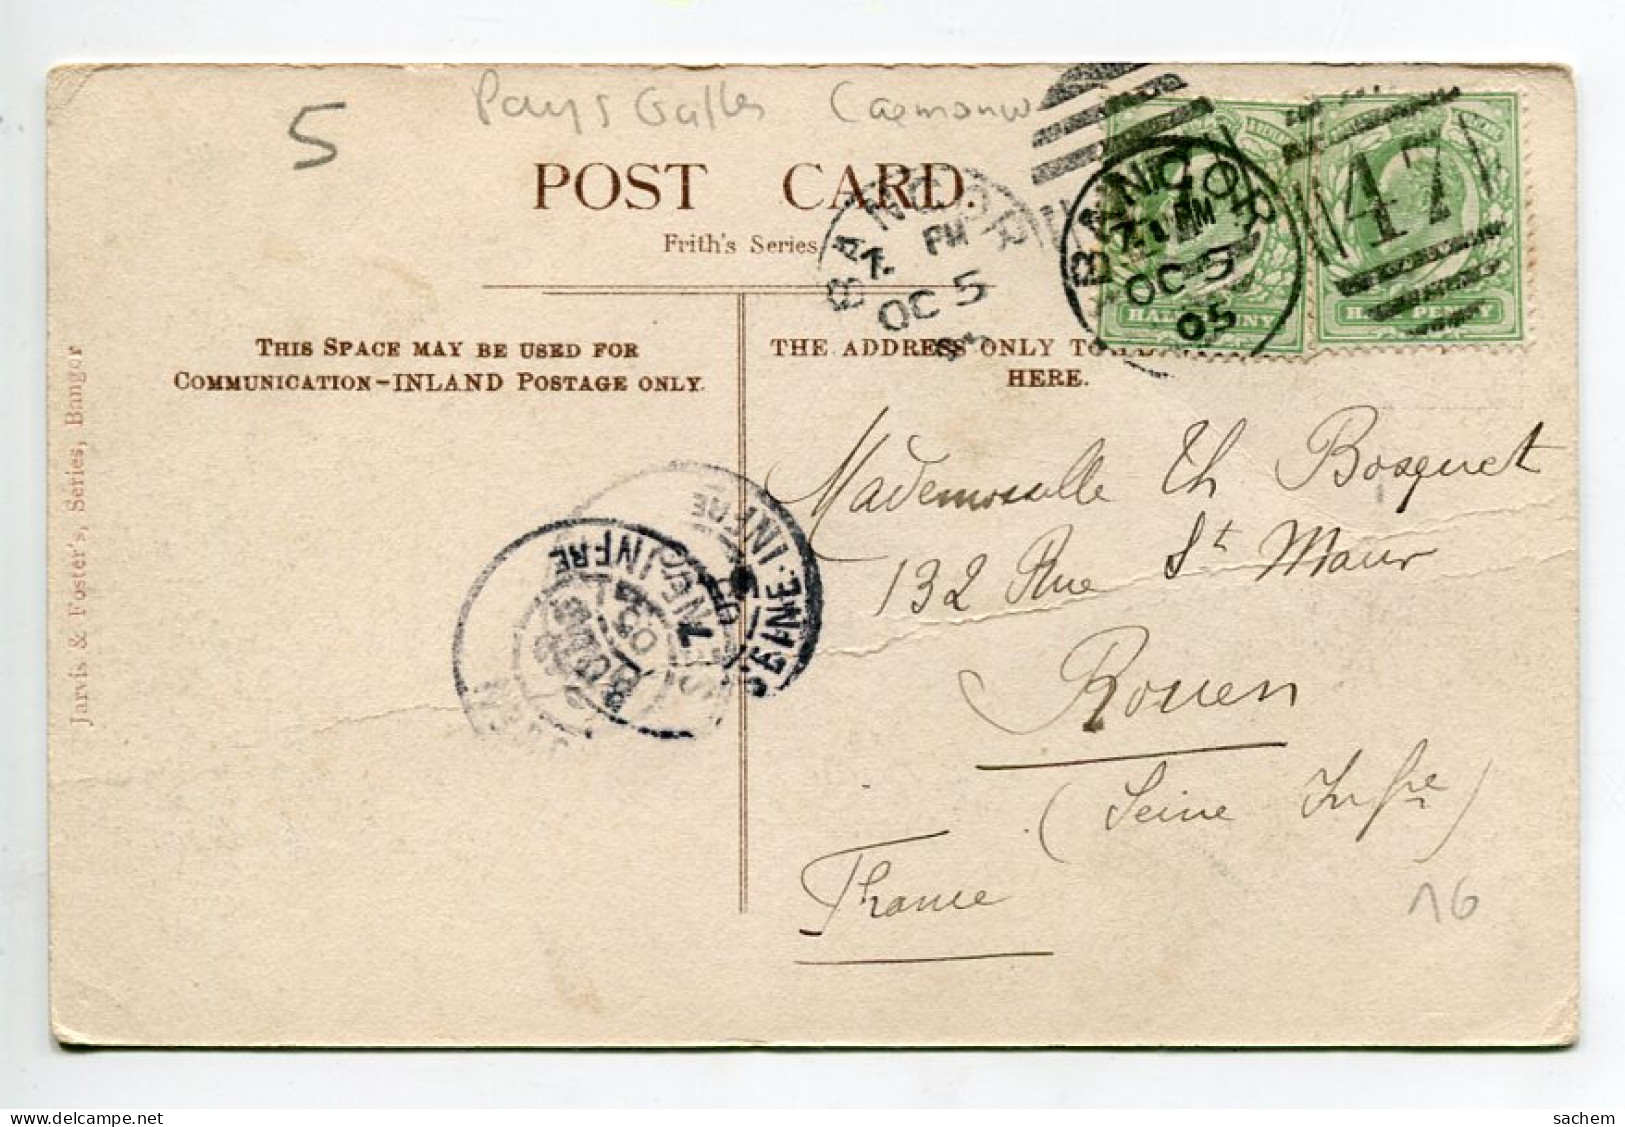 5
Pays Galles Caernarvon
POST CARD.
Frith's Series
BANGOR
7. PM
OC 5
BANGOR
OC 5
05
47
HALF PENNY
HALF PENNY
THIS SPACE MAY BE USED FOR
COMMUNICATION-INLAND POSTAGE ONLY.
THE ADDRESS ONLY TO
HERE.
Jarvis & Foster's, Series, Bangor
SEINE-INFRE
SEINE-INFRE
Mademoiselle Th Bosquet
132 Rue St Maur
Rouen
(Seine Infre)
France
16
delcampe.net
sachem